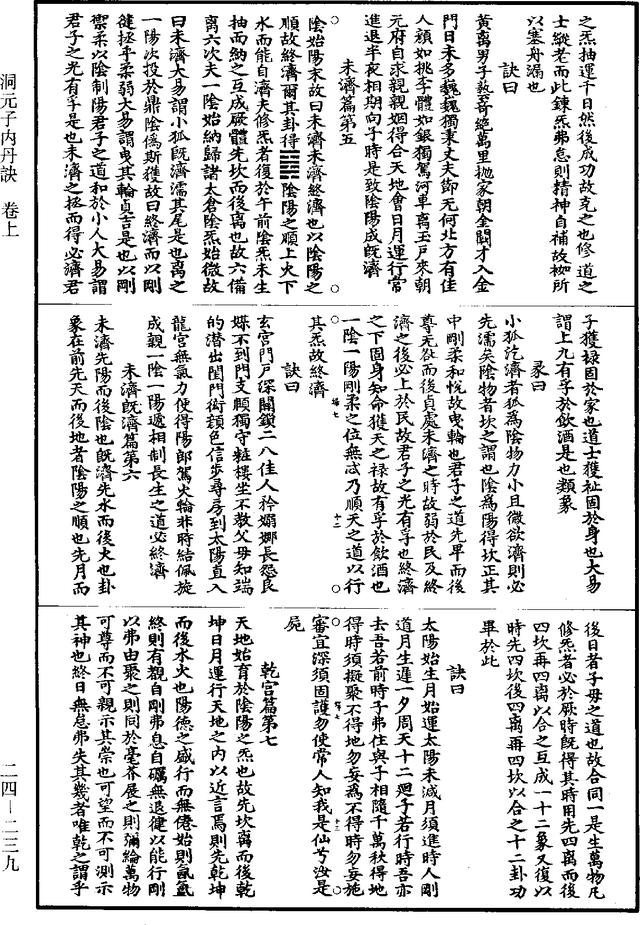 之炁抽運千日然後成功故克之也修道之
士縱老而此鍊炁弗息則精神自補故袽所
以塞舟漏也
訣曰
黃离男子藝奇絕萬里拋家朝金闕才入金
門日未多巍巍獨秉丈夫節无何北方有佳
人顏如桃李體如銀獨駕河車离玉戶來朝
元府自求親親姻得合天地會日月運行常
進退半夜相期向子時是致陰陽成旣濟
未濟篇第五
陰始陽末故曰未濟未濟終濟也以陰陽之
順故終濟爾其卦得䷿陰陽之順上火下
水而能自濟夫修炁者復於午前陰炁未生
抽而納之互成厥體先坎而後离也故六備
离六次夫一陰始納歸諸太倉陰炁始微故
曰未濟大易謂小狐旣濟濡其尾是也离之
一陽次投於鼎陰儔斯獲故曰終濟而以剛
健拯乎柔弱大易謂曳其輪貞吉是也以剛
禦柔以陰制陽君子之道和於小人大易謂
君子之光有孚是也未濟之拯而得必濟君
子獲祿固於家也道士獲祉固於身也大易
謂上九有孚於飲酒是也類象
彖曰
小狐汔濟者狐爲陰物力小且微欲濟則必
先濡矣陰物者坎之謂也陰爲陽得坎正其
中剛柔和悅故曳輪也君子之道先卑而後
尊无咎而後貞處未濟之時故弱於民及終
濟之後必上於民故君子之光有孚也終濟
之下固身知命獲天之祿故有孚於飲酒也
一陰一陽剛柔之位無忒乃順天之道以行
其炁故終濟
訣曰
玄宮門戶深關鎖二八佳人衿嫋娜長怨良
媒不到門支頤獨守粧樓坐不教父母知端
的潛出閨門衒顏色信步尋房到太陽直入
龍宮無氣力便得陽郎駕火輪非時結佩旋
成觀一陰一陽遞相制長生之道必終濟
未濟旣濟篇第六
未濟先陽而後陰也旣濟先水而後火也卦
象在前先天而後地者陰陽之順也先月而
後日者子母之道也故合同一是生萬物凡
修炁者必於厥時旣得其時用先四离而後
四坎再四离以合之互成一十二象又復以
時先四坎後四离再四坎以合之十二卦功
畢於此
訣曰
太陽始生月始運太陽未減月須進時人剛
道月生遲一夕周天十二廻子若行時吾亦
去吾若前時子弗住與子相隨千萬秋得地
得時須擬聚不得地勿妄爲不得時勿妄施
審宜深須固護勿使常人知我是仙兮汝是
屍
乾宮篇第七
天地始育於陰陽之炁也故先坎离而後乾
坤日月運行天地之內以近言焉則先乾坤
而後水火也陽德之盛行而無倦始則氤氳
終則有觀自剛弗息自礪無退健以能行剛
以弗由聚之則同於毫芥展之則彌綸萬物
可尊而不可親示其崇也可望而不可測示
其神也終日無怠弗失其幾者唯乾之謂乎
洞元子內丹訣 卷上
二四—二三九